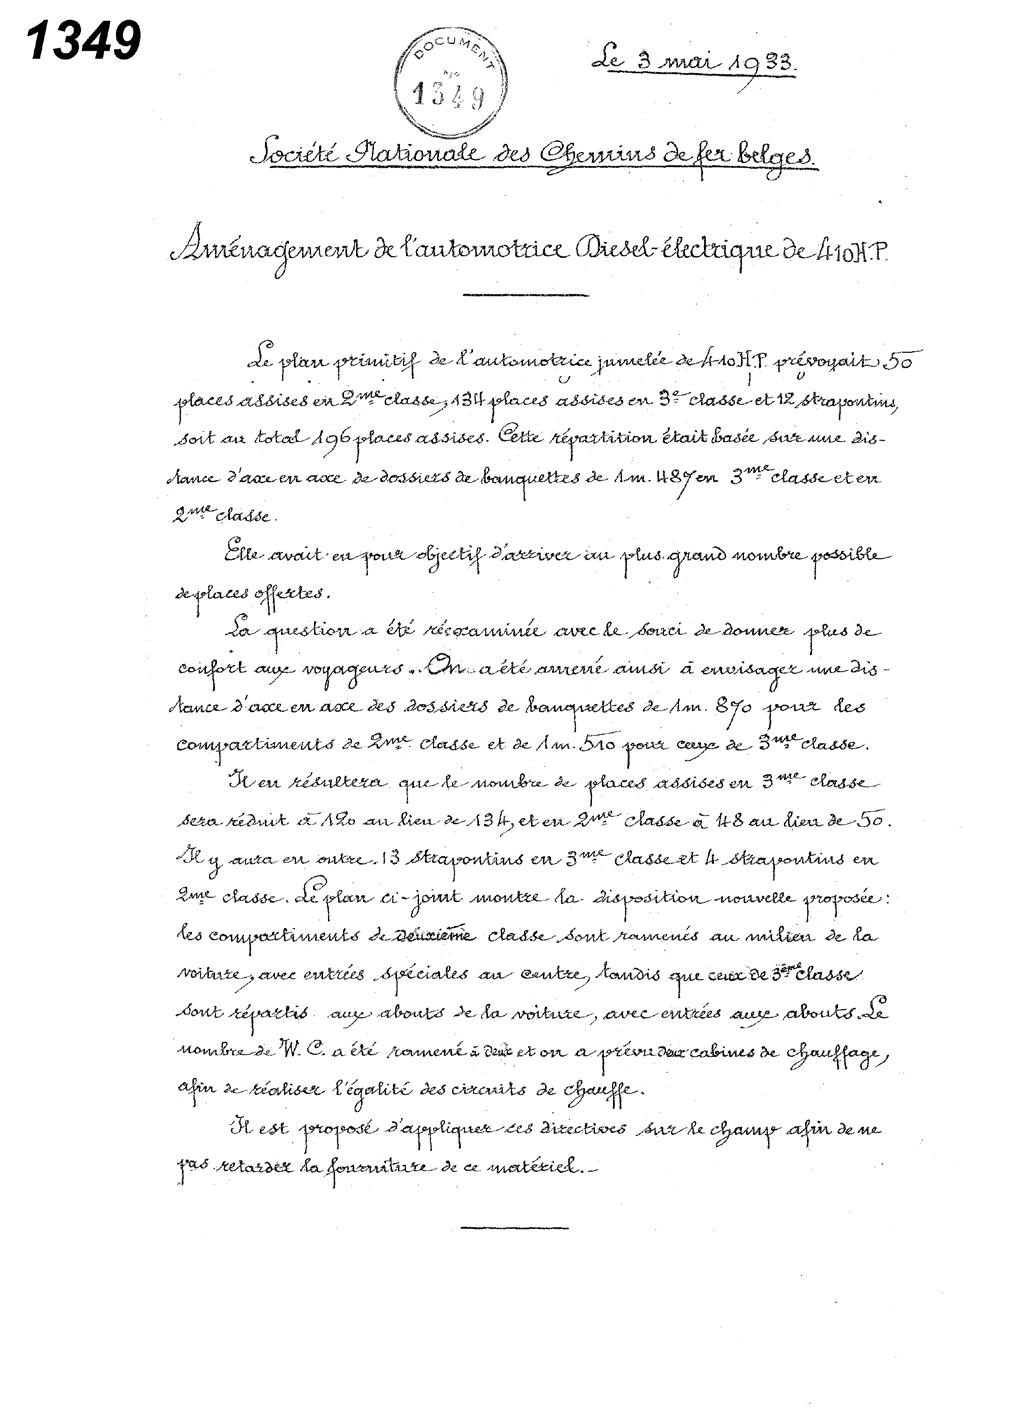 1349
DOCUMENT
No
1349
Le 3 mai 1933.
Société Nationale des Chemins de fer belges.
Aménagement de l'automotrice Diesel-électrique de 410 H.P.
Le plan primitif de l'automotrice jumelée de 410 H.P. prévoyait 50
places assises en 2me classe, 134 places assises en 3e classe et 12 strapontins,
soit au total 196 places assises. Cette répartition était basée sur une dis-
tance d'axe en axe de dossiers de banquettes de 1m.487 en 3me classe et en
2me classe.
Elle avait en pour objectif d'arriver au plus grand nombre possible
de places offertes.
La question a été réexaminée avec le souci de donner plus de
confort aux voyageurs. On a été amené ainsi à envisager une dis-
tance d'axe en axe des dossiers de banquettes de 1m.870 pour les
compartiments de 2me classe et de 1m.510 pour ceux de 3me classe.
Il en résultera que le nombre de places assises en 3me classe
sera réduit à 120 au lieu de 134, et en 2me classe à 48 au lieu de 50.
Il y aura en outre 13 strapontins en 3me classe et 4 strapontins en
2me classe. Le plan ci-joint montre la disposition nouvelle proposée :
les compartiments de deuxième classe sont ramenés au milieu de la
voiture, avec entrées spéciales au centre, tandis que ceux de 3ème classe
sont répartis aux abouts de la voiture, avec entrées aux abouts. Le
nombre de W.C. a été ramené à deux et on a prévu deux cabines de chauffage,
afin de réaliser l'égalité des circuits de chauffe.
Il est proposé d'appliquer ces directives sur le champ afin de ne
pas retarder la fourniture de ce matériel.-